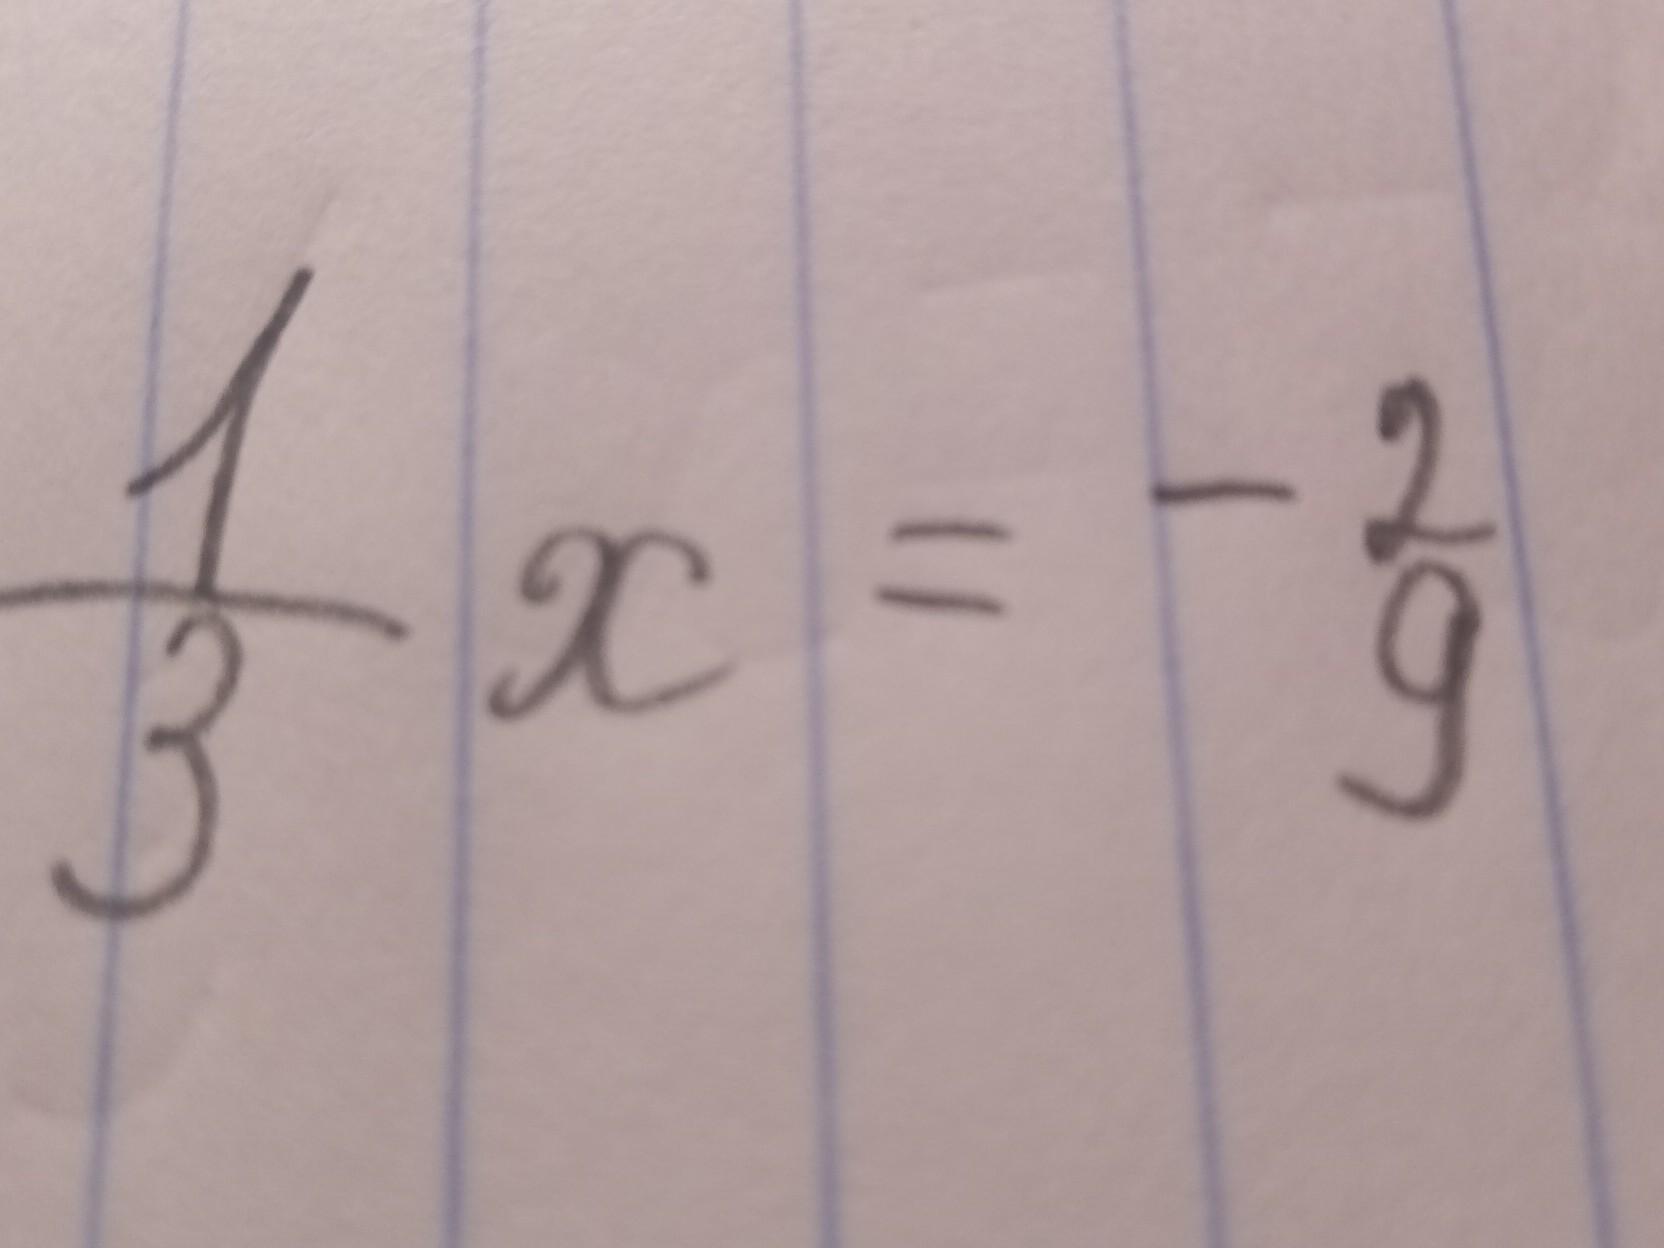 1/3 x = - 2/9